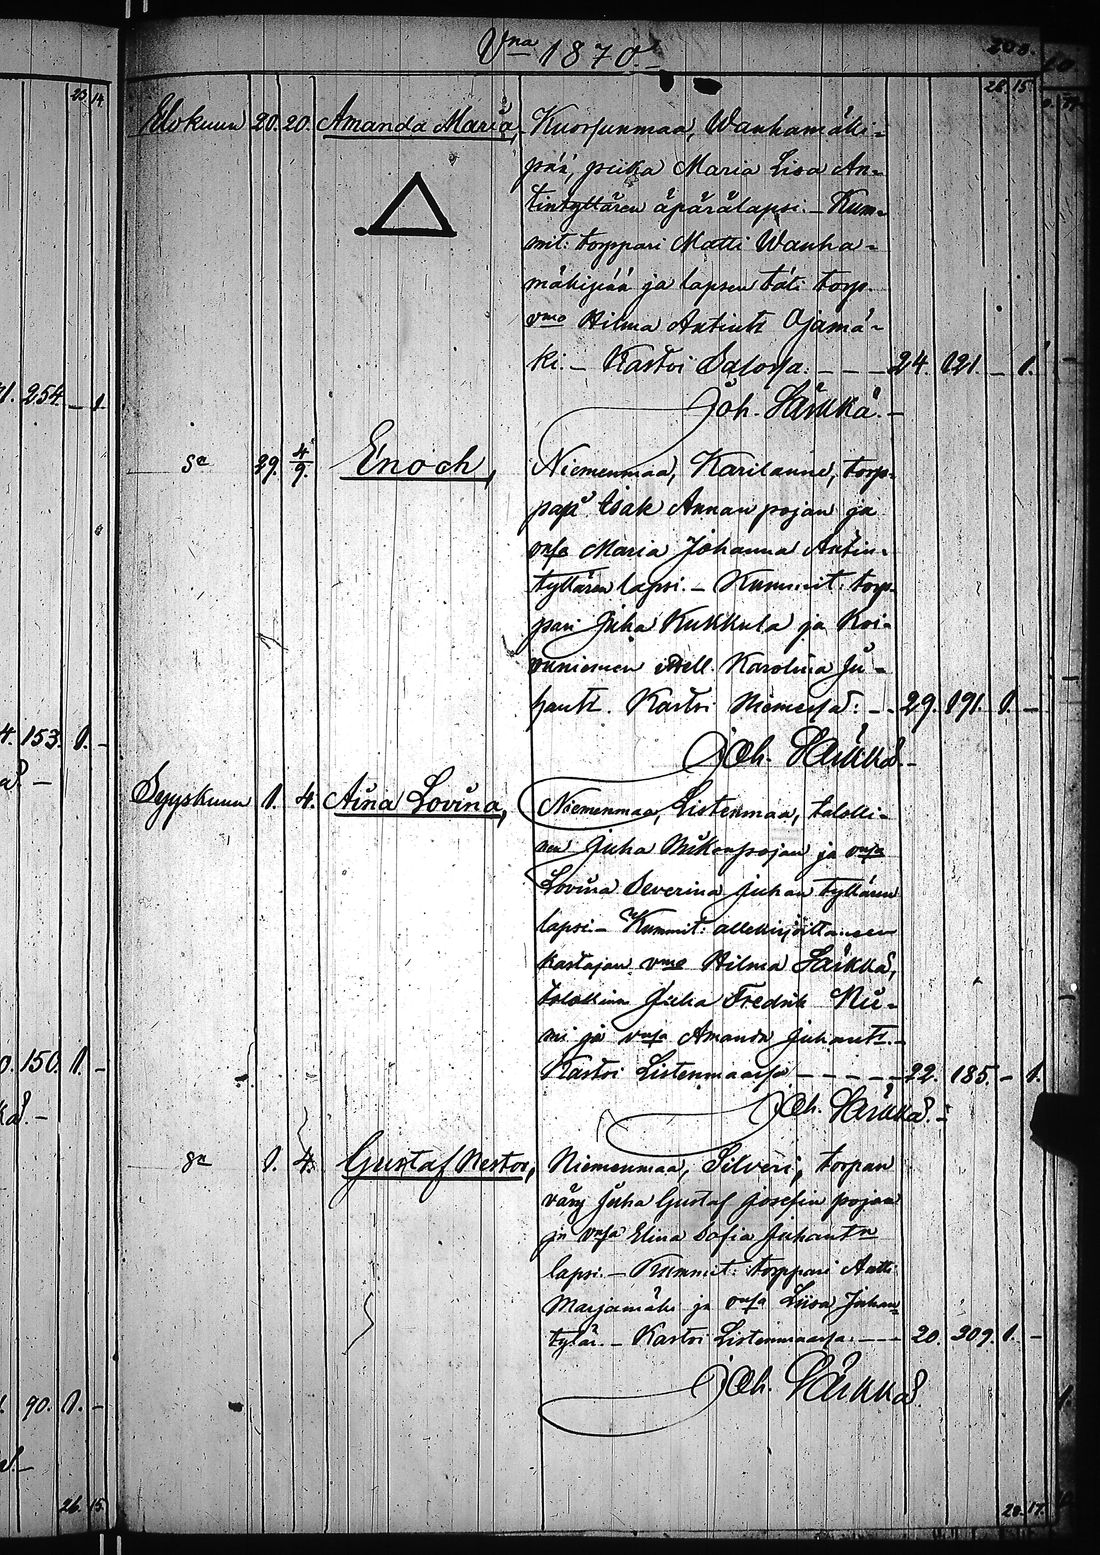 Vna 1870.
200.
28. 15.
Elokuun 20. 20. Amanda Maria, Kuorsunmaa, Wanhamäki-
pää, piika Maria Lisa An-
tintyttären äpärälapsi. - Kum-
mit: torppari Matti Wanha-
mäkipää ja lapsen täti torp.
vmo Hilma Antintr Ojamä-
ki. - Kastoi Salossa. - - - 24. 121. - 1.
Joh. Särkkä. -
Sa 29. 4/9. Enoch, Niemenmaa, Karilanne, torp-
pari Isak Annan pojan ja
vaso Maria Johanna Antin-
tyttären lapsi. - Kummit: torp-
pari Juha Kukkula ja Koi-
vuniemen itsell. Karolina Ju-
hantr. Kastoi Niemessä. - - 29. 191. 1. -
Joh. Särkkä. -
Syyskuun 1. 4. Aina Lovina, Niemenmaa, Listenmaa, talolli-
nen Juha Mikonpojan ja vaso
Lovina Severina Juhan tyttären
lapsi. - Kummit: allekirjoittaneen
kastajan vmo Hilma Särkkä,
talollinen Juha Fredrik Nie-
mi ja vaso Amanda Juhantr. -
Kastoi Listenmaassa - - - - - 22. 185. - 1.
Joh. Särkkä. -
Sa 1. 4. Gustaf Nestor, Niemenmaa, Silveri, torpan
vävy Juha Gustaf Josefin pojan
ja vaso Elina Sofia Juhantr
lapsi. - Kummit: torppari Antti
Marjamäki ja vaso Liisa Juhan-
tytär. - Kastoi Listenmaassa. - - - 20. 209. 1. -
Joh. Särkkä.
28. 17.
23. 14.
254. - 1.
4. 153. 1. -
0. 150. 1. -
90. 1. -
26. 15.